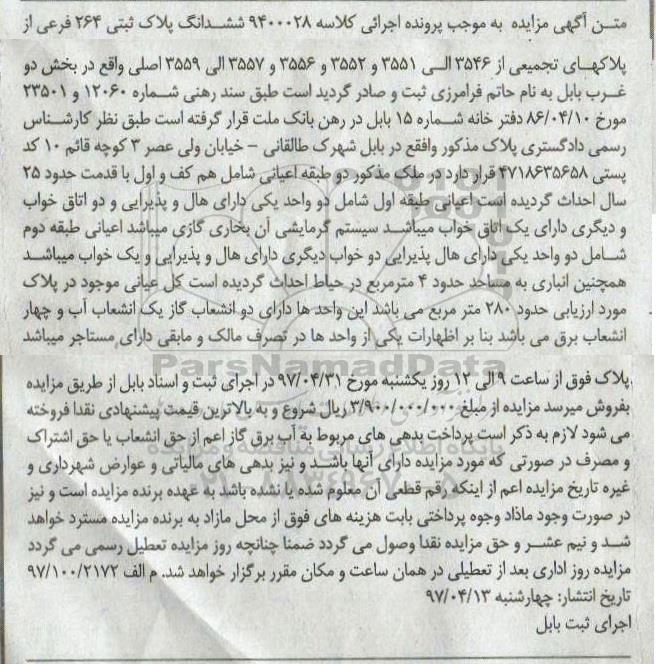 متن آگهی مزایده به موجب پرونده اجرائی کلاسه ۹۴۰۰۰۲۸ ششدانگ پلاک ثبتی ۲۶۴ فرعی از
پلاکهای تجمیعی از ۳۵۴۶ الی ۳۵۵۱ و ۳۵۵۲ و ۳۵۵۶ و ۳۵۵۷ الی ۳۵۵۹ اصلی واقع در بخش دو
غرب بابل به نام حاتم فرامرزی ثبت و صادر گردید است طبق سند رهنی شماره ۱۲۰۶۰ و ۲۳۵۰۱
مورخ ۸۶/۰۴/۱۰ دفتر خانه شماره ۱۵ بابل در رهن بانک ملت قرار گرفته است طبق نظر کارشناس
رسمی دادگستری پلاک مذکور وافقع در بابل شهرک طالقانی - خیابان ولی عصر ۳ کوچه قائم ۱۰ کد
پستی ۴۷۱۸۶۳۵۶۵۸ قرار دارد در ملک مذکور دو طبقه اعیانی شامل هم کف و اول با قدمت حدود ۲۵
سال احداث گردیده است اعیانی طبقه اول شامل دو واحد یکی دارای هال و پذیرایی و دو اتاق خواب
و دیگری دارای یک اتاق خواب میباشد سیستم گرمایشی آن بخاری گازی میباشد اعیانی طبقه دوم
شامل دو واحد یکی دارای هال پذیرایی دو خواب دیگری دارای هال و پذیرایی و یک خواب میباشد
همچنین انباری به مساحد حدود ۴ مترمربع در حیاط احداث گردیده است کل عیانی موجود در پلاک
مورد ارزیابی حدود ۲۸۰ متر مربع می باشد این واحد ها دارای دو انشعاب گاز یک انشعاب آب و چهار
انشعاب برق می باشد بنا بر اظهارات یکی از واحد ها در تصرف مالک و مابقی دارای مستاجر میباشد
ParsNamadData
پلاک فوق از ساعت ۹ الی ۱۲ روز یکشنبه مورخ ۹۷/۰۴/۳۱ در اجرای ثبت و اسناد بابل از طریق مزایده
بفروش میرسد مزایده از مبلغ ۳/۹۰۰/۰۰۰/۰۰۰ ریال شروع و به بالاترین قیمت پیشنهادی نقدا فروخته
می شود لازم به ذکر است پرداخت بدهی های مربوط به آب برق گاز اعم از حق انشعاب یا حق اشتراک
و مصرف در صورتی که مورد مزایده دارای آنها باشد و نیز بدهی های مالیاتی و عوارض شهرداری و
غیره تاریخ مزایده اعم از اینکه رقم قطعی آن معلوم شده یا نشده باشد به عهده برنده مزایده است و نیز
در صورت وجود ماذاد وجوه پرداختی بابت هزینه های فوق از محل مازاد به برنده مزایده مسترد خواهد
شد و نیم عشر و حق مزایده نقدا وصول می گردد ضمنا چنانچه روز مزایده تعطیل رسمی می گردد
مزایده روز اداری بعد از تعطیلی در همان ساعت و مکان مقرر برگزار خواهد شد. م الف ۹۷/۱۰۰/۲۱۷۲
تاریخ انتشار: چهارشنبه ۹۷/۰۴/۱۳
اجرای ثبت بابل